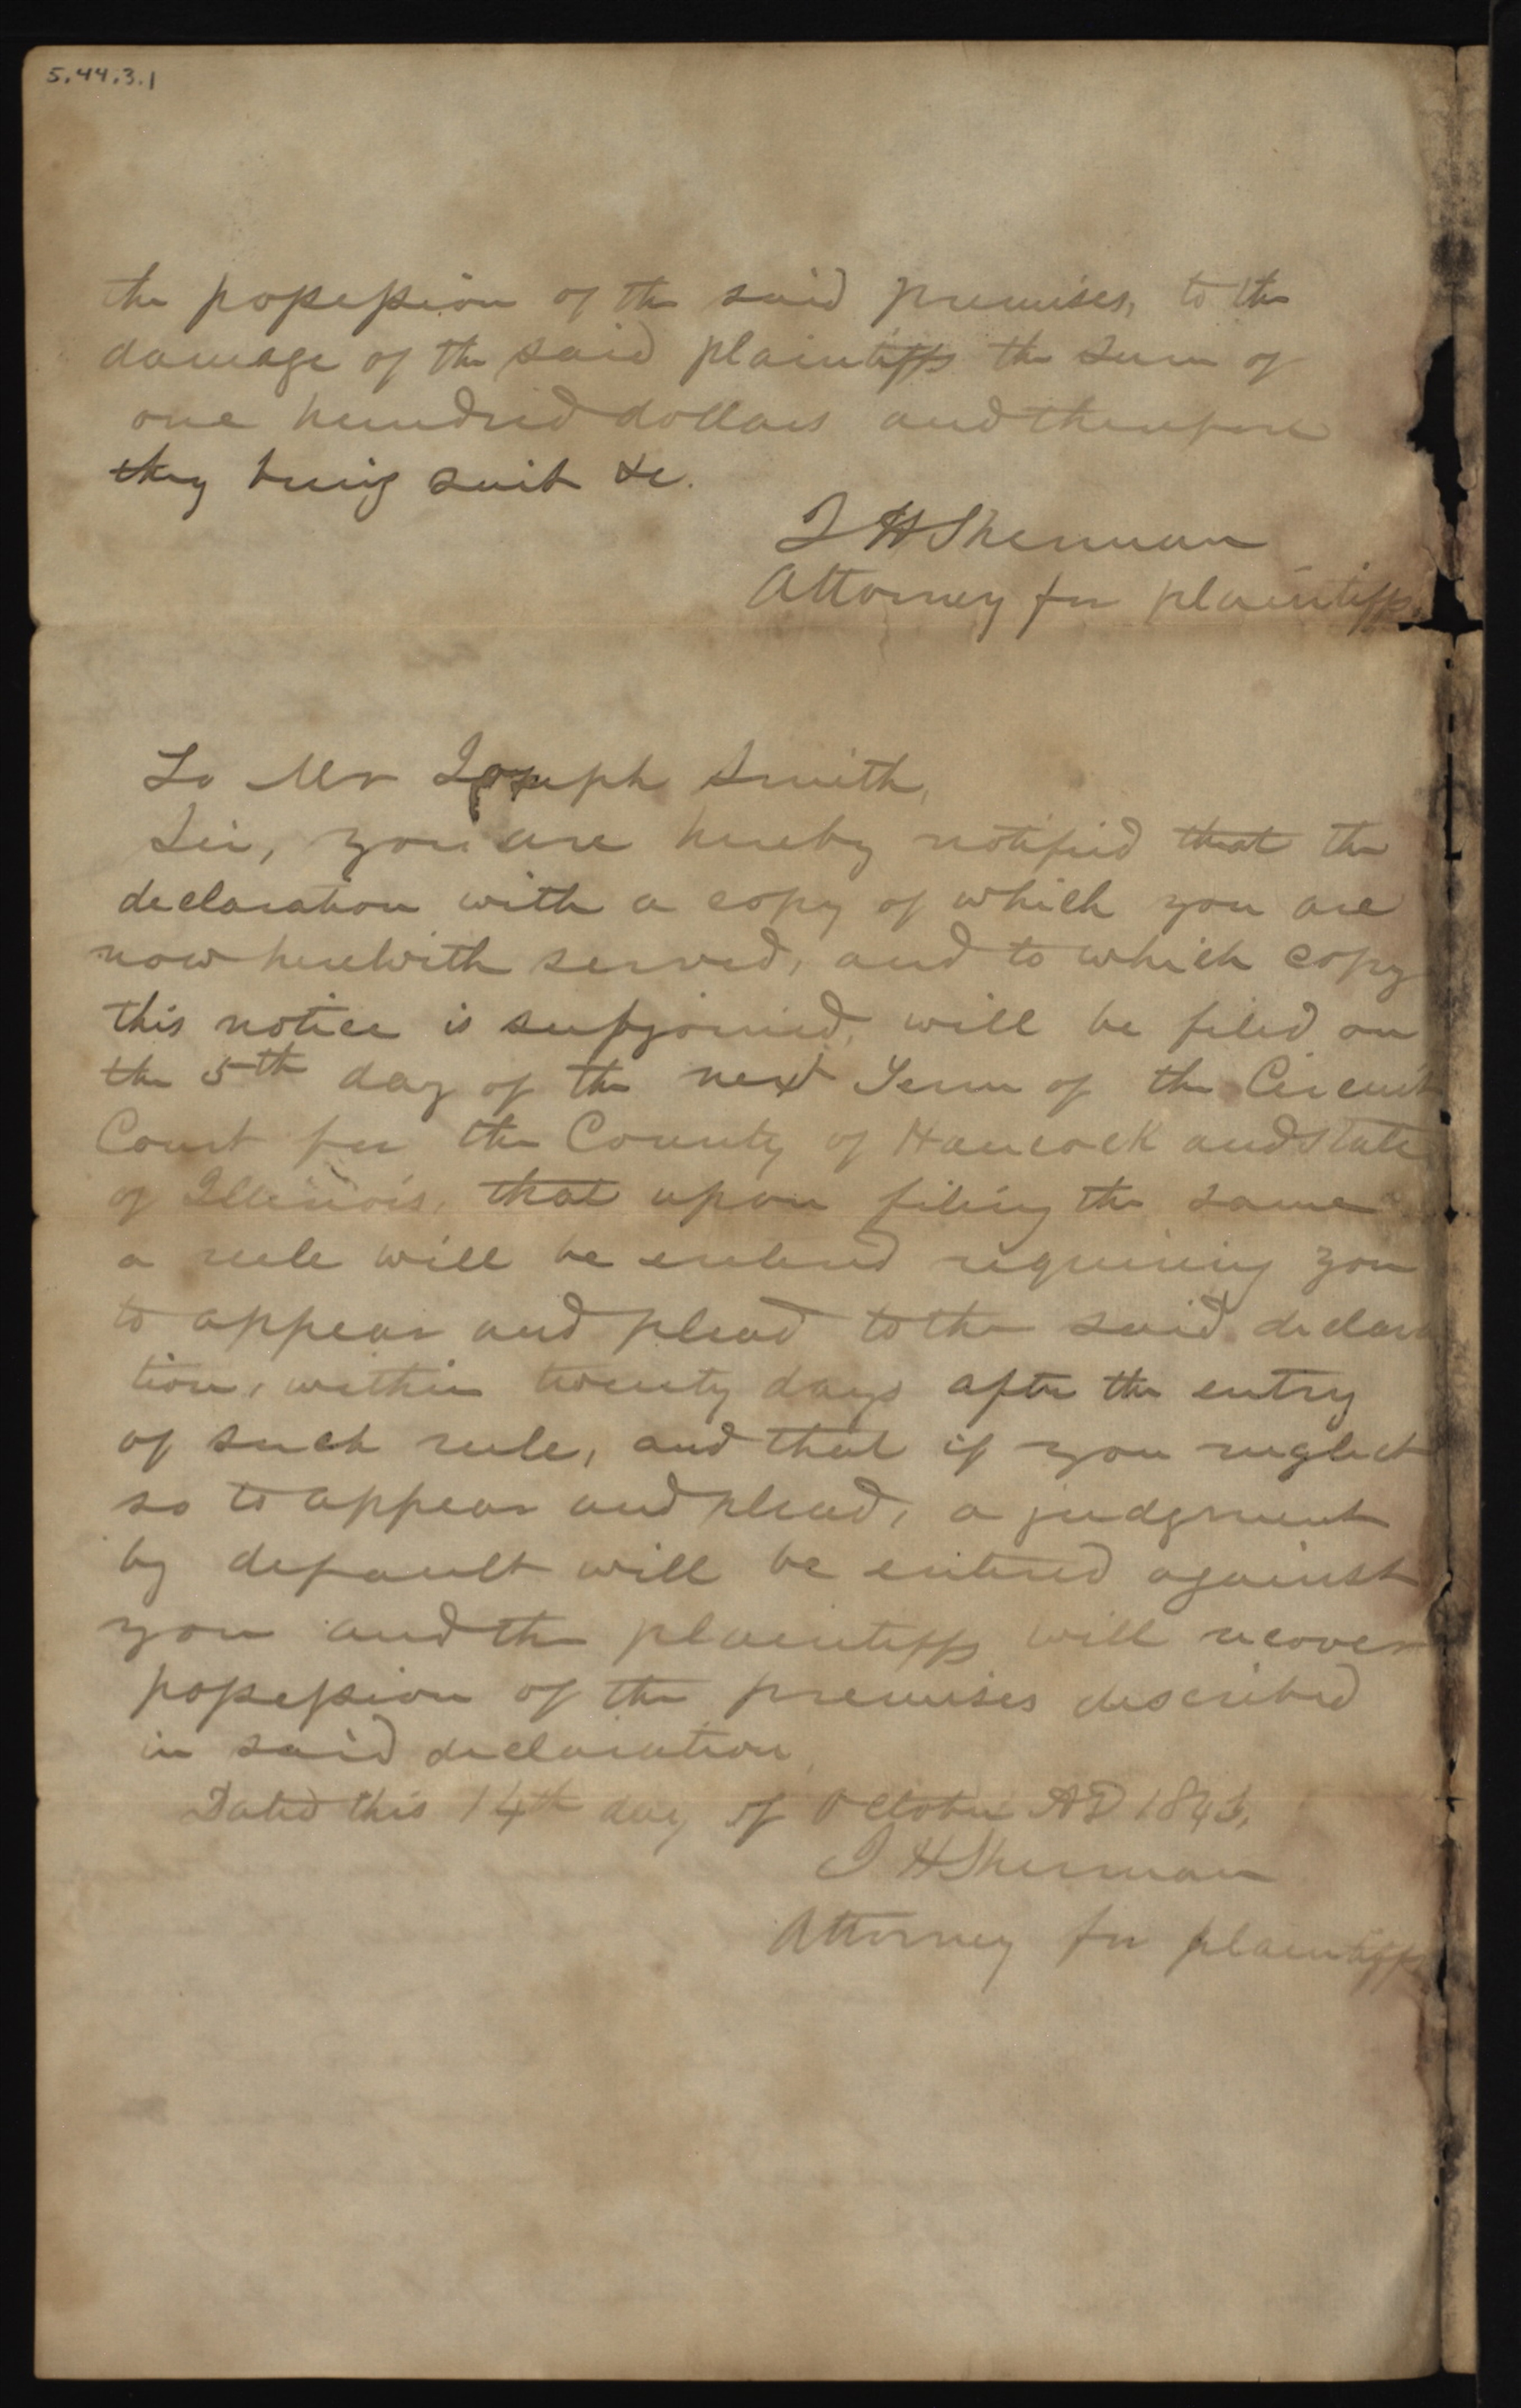 5.44.3.1
the possession of the said premises, to the
damage of the said plaintiffs the sum of
one hundred dollars and therefore
they bring suit &c.
J H Sherman
Attorney for plaintiffs
To Mr Joseph Smith,
Sir, you are hereby notified that the
declaration with a copy of which you are
now herewith served, and to which copy
this notice is subjoined, will be filed on
the 5th day of the next Term of the Circuit
Court for the County of Hancock and State
of Illinois, that upon filing the same
a rule will be entered requiring you
to appear and plead to the said declara
tion, within twenty days after the entry
of such rule, and that if you neglect
so to appear and plead, a judgment
by default will be entered against
you and the plaintiffs will recover
possession of the premises described
in said declaration
Dated this 14th day of October AD 1843,
J H Sherman
Attorney for plaintiffs